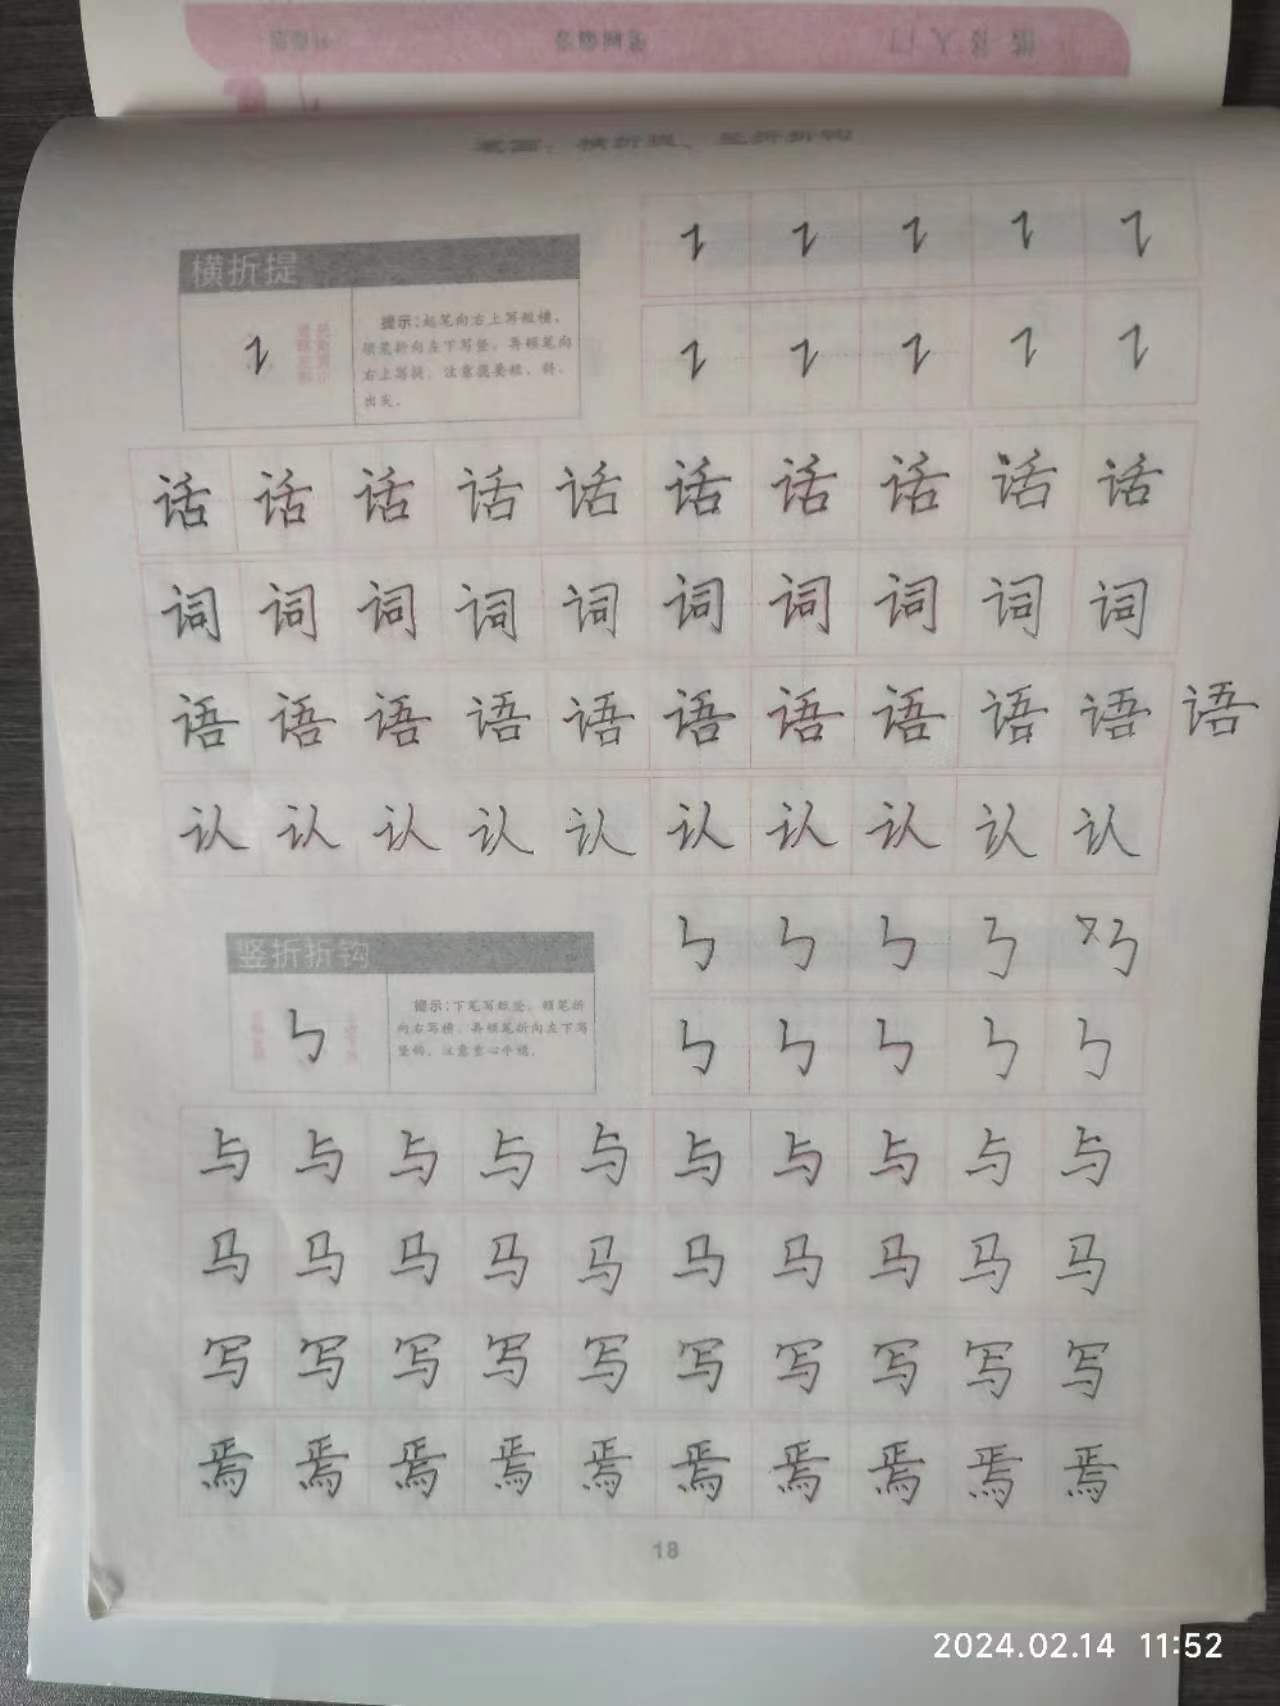 楷书入门
笔画：横折提、竖折折钩
横折提
提示：起笔向右上写短横，
顿笔折向左下写竖，再顿笔向
右上写提，注意提要短、斜、
出尖。
话话话话话话话话话话
词词词词词词词词词词
语语语语语语语语语语语
认认认认认认认认认认
竖折折钩
提示：下笔写短竖，顿笔折
向右写横，再顿笔折向左下写
竖钩，注意重心平稳。
与与与与与与与与与与
马马马马马马马马马马
写写写写写写写写写写
焉焉焉焉焉焉焉焉焉焉
18
2024.02.14 11:52